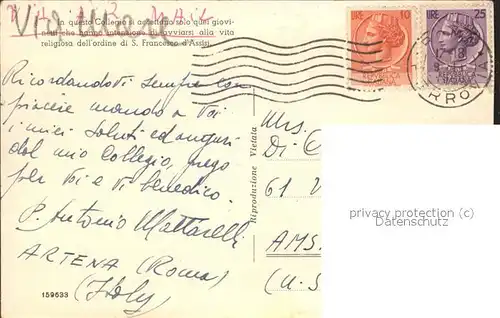 VIA AEREA
In questo Collegio si accettano solo quei giovi-
netti che hanno intenzione di avviarsi alla vita
religiosa dell'ordine di S. Francesco d'Assisi
LIRE 10
LIRE 25
Ricordandovi sempre con
piacere mando a Voi
i miei Saluti ed auguri
dal mio Collegio, prego
per Voi e Vi benedico.
P. Antonio Mattarelli
ARTENA (Roma)
(Italy)
159633
Riproduzione Vietata
Mrs.
Di-C
61
AMS
(U.S
privacy protection (c)
Datenschutz